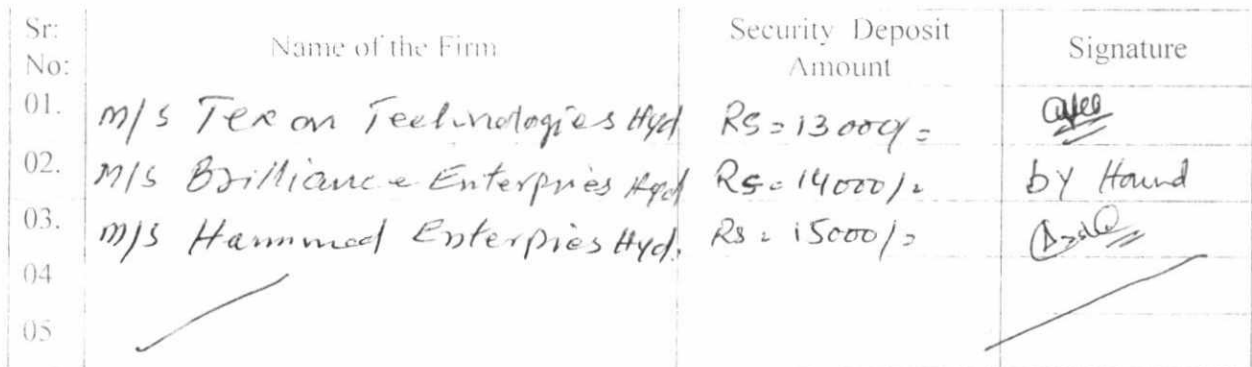 Sr: No: Name of the Firm Security Deposit Amount Signature
01. M/S Texon Technologies Hyd Rs=13000/=
02. M/S Brilliance Enterpries Hyd Rs=14000/= by Hound
03. M/S Hammed Enterpries Hyd. Rs=15000/=
04
05